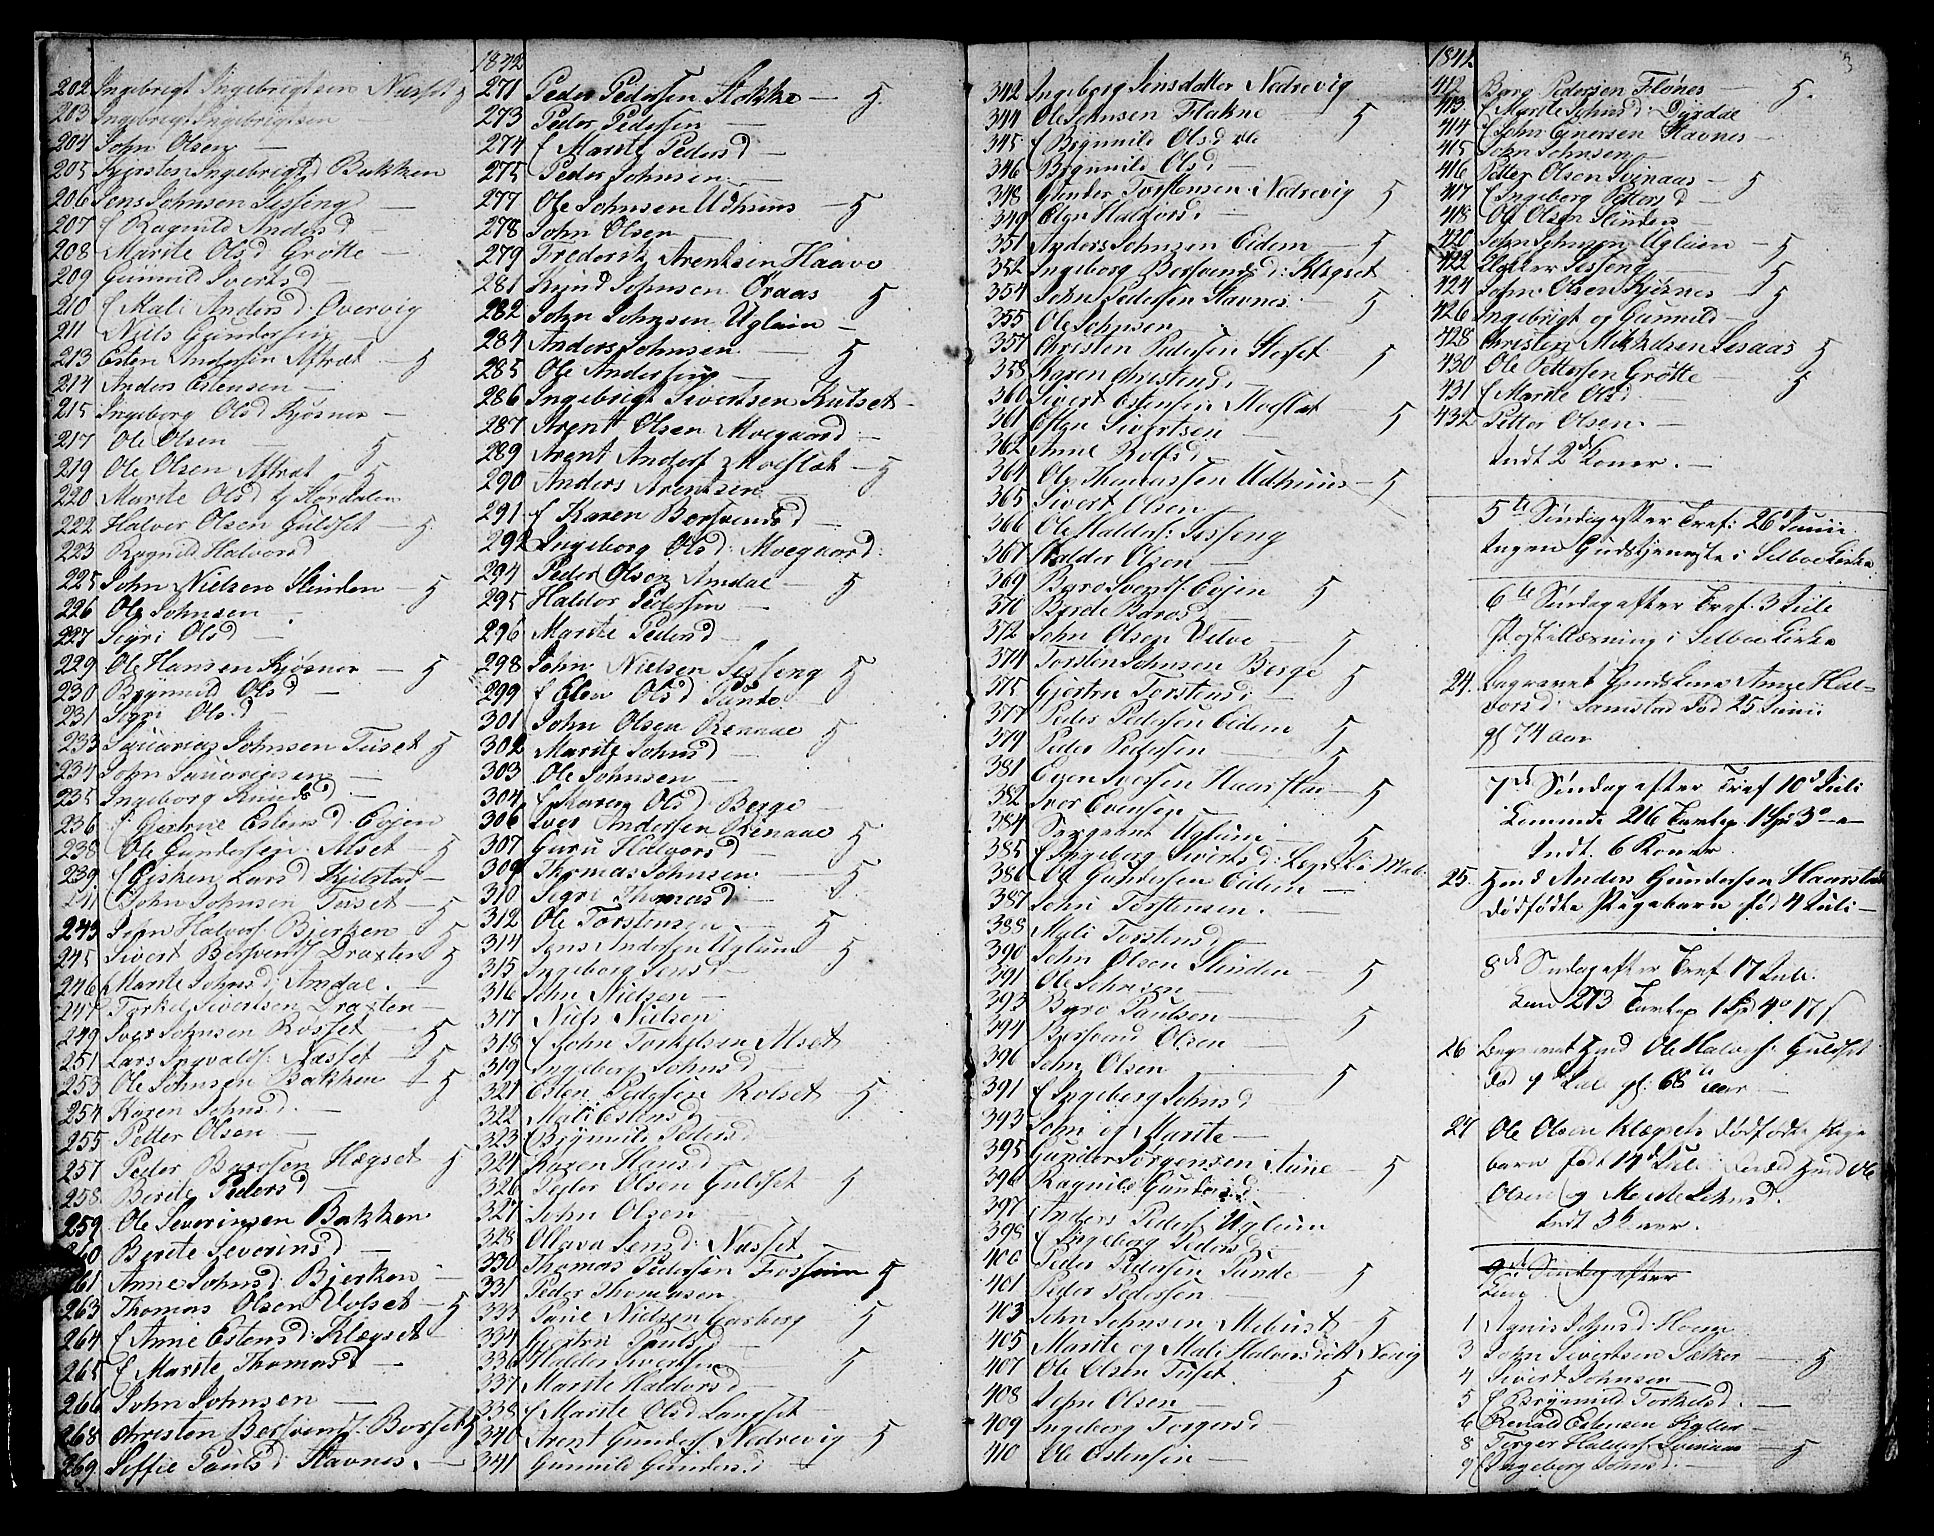 202 Ingebrigt Ingebrigtsen Næsset 5
203 Ingebrigt Ingebrigtsen
204 John Olsen —
205 Kjersten Ingebrigtd Bakken
206 Jens Johnsen Sesseng —
207 f Ragnild Andersd —
208 Marite Olsd Grøtte —
209 Gunnild Sivertsd —
210 f Mali Andersd: Overvig
211 Niels Gundersen —
213 Esten Andersen Aftræt — 5
214 Anders Estensen —
215 Ingeborg Olsd Kjøsner —
217 Ole Olsen — 5
219 Ole Olsen Aftræt — 5
220 Marite Olsd
222 Halvor Olsen Guldset — 5
223 Ragnild Halvorsd
225 John Nielsen Slinden — 5
226 Ole Johnsen —
227 Sigri Olsd —
229 Ole Hansen Kjøsner — 5
230 Brynnild Olsd —
231 Sigri Olsd —
233 Johnsen Tuset 5
234 John
235 Ingeborg —
236 f Gjertrue Estensd Evjen
238 Ole Gundersen Alset — 5
239 f Gjesken Larsd Kjelstad —
241 f John Johnsen Tuset — 5
243 John Halvors: Bjerken — 5
245 Sivert Bersvends Draxten 5
246 f Marite Johnsd: Amdal. —
247 Torkel Sivertsen Draxten —
249 Iver Johnsen Rosset — 5
251 Lars Ingvalds: Næsset — 5
253 Ole Johnsen Bakken — 5
254 Karen Johnsd. —
255 Petter Olsen —
257 Peder Barosen Hægset — 5
258 Berete Pedersd —
259 Ole Severinsen Bakken
260 Berete Severinsd —
261 Anne Johnsd: Bjerken —
263 Thomas Olsen Volset — 5
264 f Anne Estensd: Klegset —
265 f Marite Thomasd —
266 John Johnsen —
268 Christen Bersvends: Borset 5
269 Seffie Paulsd Stavnes. —
1842
271 Peder Pedersen Stokke — 5
273 Peder Pedersen —
274 f Marite Pedersd —
275 Peder Johnsen —
277 Ole Johnsen Udhuus — 5
278 John Olsen —
279 Frederik Arentsen Haave
281 Knud Johnsen Øraas — 5
282 John Johnsen Uglem —
284 Anders Johnsen — 5
285 Ole Andersen —
286 Ingebrigt Sivertsen Kulset —
287 Arent Olsen Moegaard —
289 Arent Anders: Moeslet — 5
290 Anders Arentsen —
291 f Karen Bersvendsd —
292 Ingeborg Olsd: Moegaard:
294 Peder Olsen Amdal — 5
295 Haldor Pedersen —
296 Marite Pedersd —
298 John Nielsen Sesseng 5
299 f Elen Olsd Sande —
301 John Olsen Renaae — 5
302 Marite Johnsd —
303 Ole Johnsen —
304 f Karen Olsd Berge —
306 Iver Andersen Renaae — 5
307 Guru Halvorsd —
309 Thomas Johnsen — 5
310 Segri Thomasd —
312 Ole Torstensen — 5
314 Jens Andersen Uglem — 5
315 Ingeborg Jensd —
316 John Nielsen —
317 Niels Nielsen —
318 f John Torkelsen Alset
319 Ingeberg Johnsd —
321 Esten Pedersen Rolset — 5
322 Mali Estensd —
323 Brynnild Pedersd —
324 Karen Hansd
326 Peder Olsen Guldset — 5
327 John Olsen —
328 Ollava Jensd: Næsset —
330 Thomas Pedersen Fossum 5
331 Peder Thomasen
333 Paul Nielsen Garberg — 5
334 Gjertru Paulsd
336 Haldor Sivertsen — 5
337 Marite Haldorsd —
338 f Marite Olsd Langset
340 Arent Gunders Nedrevig — 5
341 Gunnild Gundersd —
342 Ingeborg Jensdatter Nedrevig
344 Ole Johnsen Flakne — 5
345 f Brynnild Olsd
346 Brynnild Olsd —
348 Gunder Torstensen Nedrevig 5
349 Elen Haldors: —
351 Anders Johnsen Eidem — 5
352 Ingeborg Bersvendsd: Klegset
354 John Pedersen Stavnes. — 5
355 Ole Johnsen —
357 Christen Pedersen Slefset 5
358 Karen Christensd. —
360 Sivert Estensen Moeslet — 5
361 Esten Sivertsen —
362 Anne Rolfsd —
364 Ole Thomassen Udhuus — 5
365 Sivert Olsen —
366 Ole Haldors: Sesseng
367 Haldor Olsen —
369 Baro Svends: Evjen 5
370 Berete Barosd —
372 John Olsen Velve — 5
374 Torsten Johnsen Berge 5
375 Gjertru Torstensd: —
377 Peder Pedersen Eidem — 5
379 Peder Pedersen — 5
381 Even Iversen Haarstad — 5
382 Iver Evensen —
384 Sergeant Uglem — 5
385 f Ingeberg Siverts d:
386 Ole Gundersen Eidem —
387 John Torstensen. —
388 Mali Torstensd —
390 John Olsen Slinden — 5
391 Ole Johnsen —
393 Baro Paulsen — 5
394 Bersvend Olsen —
390 John Olsen — 5
391 f Ingeberg Johnsd
393 John og Marite —
395 Gunder Jørgensen Aune — 5
396 Ragnild Gundersd —
397 Anders Peders Uglem
398 f Ingeberg Pedersd —
400 Peder Pedersen Sande 5
401 Peder Pedersen —
403 John Johnsen Mebust — 5
405 Marite og Mali Halvorsdøtt Nervig
407 Ole Olsen Tuset. 5
408 John Olsen —
409 Ingeberg Torgersd —
410 Ole Ostensen —
1842
412 Baro Pedersen Flønes — 5
413 f Marite Johnsd: Dyrdal
414 f John Einersen Stavnes
415 John Johnsen —
416 Petter Olsen Svinaas — 5
417 f Ingeberg Pettersd —
418 Ole Olsen Slinden
420 John Johnsen Uglem — 5
422 Klokker Sesseng — 5
424 John Olsen Kjøsnes — 5
426 Ingebrigt og Gunnild —
428 Christen Mikkelsen Lesaas 5
430 Ole Pettersen Grøtte — 5
431 f Marite Olsd. —
432 Petter Olsen. —
Indt 2de Koner. —
5te Søndag efter Tref: 26d Junii
Ingen Gudstjeneste i Selboe Kirke
6te Søndag efter Tref. 3 Juli
Postillæsning i Selboe Kirke
24. Begravet Anne Hal-
vorsd: Samstad død 25 Junii
gl 74 aar
7de Søndag efter Tref 10d Juli
Comunic 216
Indt. 6 Koner.
25. Hmd Anders Gundersen Haarstad
dødfødte Pigebarn fød 4 Juli —
8de Søndag efter Tref 17 Juli.
Com 273
26. Begravet Hmd Ole Halvors: Guldset
død 9d Juli gl: 68 aar —
27 Ole Olsen Klegsets dødfødte Pige
barn født 14d Juli Hmd Ole
Olsen og Marite Johnsd.
Indt 3 Koner.
9de Søndag efter
Com
1 Agnis Johnsd: Hoem
3 John Sivertsen Sælker — 5
4 Sivert Johnsen —
5 f Brynnild Torkelsd. —
6 Renald Estensen Kyllo —
8 Torger Haldors: Svinaas — 5
9 f Ingeberg Johnsd: —